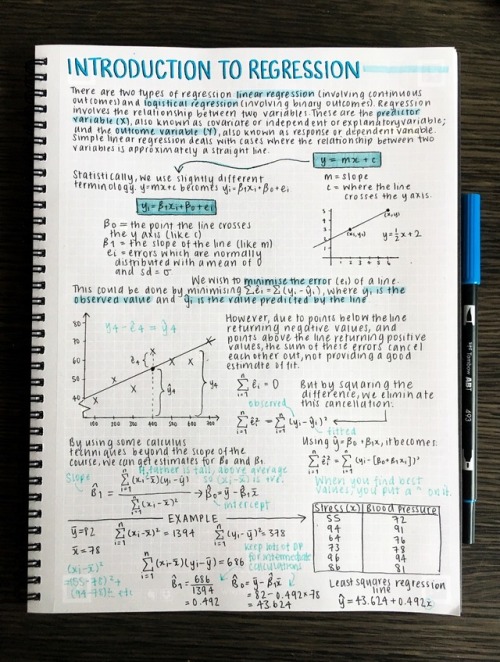 INTRODUCTION TO REGRESSION
There are two types of regression linear regression (involving continuous
outcomes) and logistical regression (involving binary outcomes). Regression
involves the relationship between two variables. These are the predictor
variable (X), also known as covariate or independent or explanatory variable;
and the outcome variable (Y), also known as response or dependent variable.
Simple linear regression deals with cases where the relationship between two
variables is approximately a straight line.
y = mx + c
Statistically, we use slightly different
terminology. y=mx+c becomes yᵢ=β₁xᵢ+β₀+eᵢ
m = slope
c = where the line
crosses the y axis.
yᵢ = β₁xᵢ + β₀ + eᵢ
β₀ = the point the line crosses
the y axis (like c)
β₁ = the slope of the line (like m)
eᵢ = errors which are normally
distributed with a mean of 0
and sd = σ
5
4
3
2
1
1 2 3 4 5 6
(x,y)
y=½x+2
We wish to minimise the error (eᵢ) of a line.
This could be done by minimising Σeᵢ = Σ(yᵢ-ŷᵢ), where yᵢ is the
observed value and ŷᵢ is the value predicted by the line
80
70
60
50
40
100 200 300 400 500 600 700
y₄ - ê₄ = ŷ₄
ê₄
ŷ₄
y₄
However, due to points below the line
returning negative values, and
points above the line returning positive
values, the sum of these errors cancel
each other out, not providing a good
estimate of fit.
n Σ i=1 êᵢ = 0
But by squaring the
difference, we eliminate
this cancellation.
observed
n Σ i=1 êᵢ² = n Σ i=1 (yᵢ-ŷᵢ)²
fitted
By using some calculus
techniques beyond the slope of the
course, we can get estimates for β₀ and β₁.
Using ŷ=β₀+β₁x, it becomes:
n Σ i=1 êᵢ² = n Σ i=1 (yᵢ-[β₀+β₁xᵢ])²
Slope
if father is tall, above average
so (xᵢ-x̄) is +ve.
β̂₁ = n Σ i=1 (xᵢ-x̄)(yᵢ-ȳ) / n Σ i=1 (xᵢ-x̄)² → β̂₀ = ȳ - β̂₁x̄
intercept
When you find best
values, you put a ^ on it.
EXAMPLE
ȳ=82
x̄=78
n Σ i=1 (xᵢ-x̄)² = 1394
n Σ i=1 (yᵢ-ȳ)² = 378
n Σ i=1 (xᵢ-x̄)(yᵢ-ȳ) = 686
(xᵢ-x̄)²
=(55-78)²+
(94-78)²+ etc
keep lots of DP
for intermediate
calculations
β̂₁ = 686/1394
= 0.492
β̂₀ = ȳ - β̂₁x̄
= 82-0.492×78
= 43.624
Stress (x) Blood Pressure
55 72
94 91
64 76
73 78
96 94
86 81
Least squares regression
line
ŷ = 43.624 + 0.492x
Tombow ABT
493